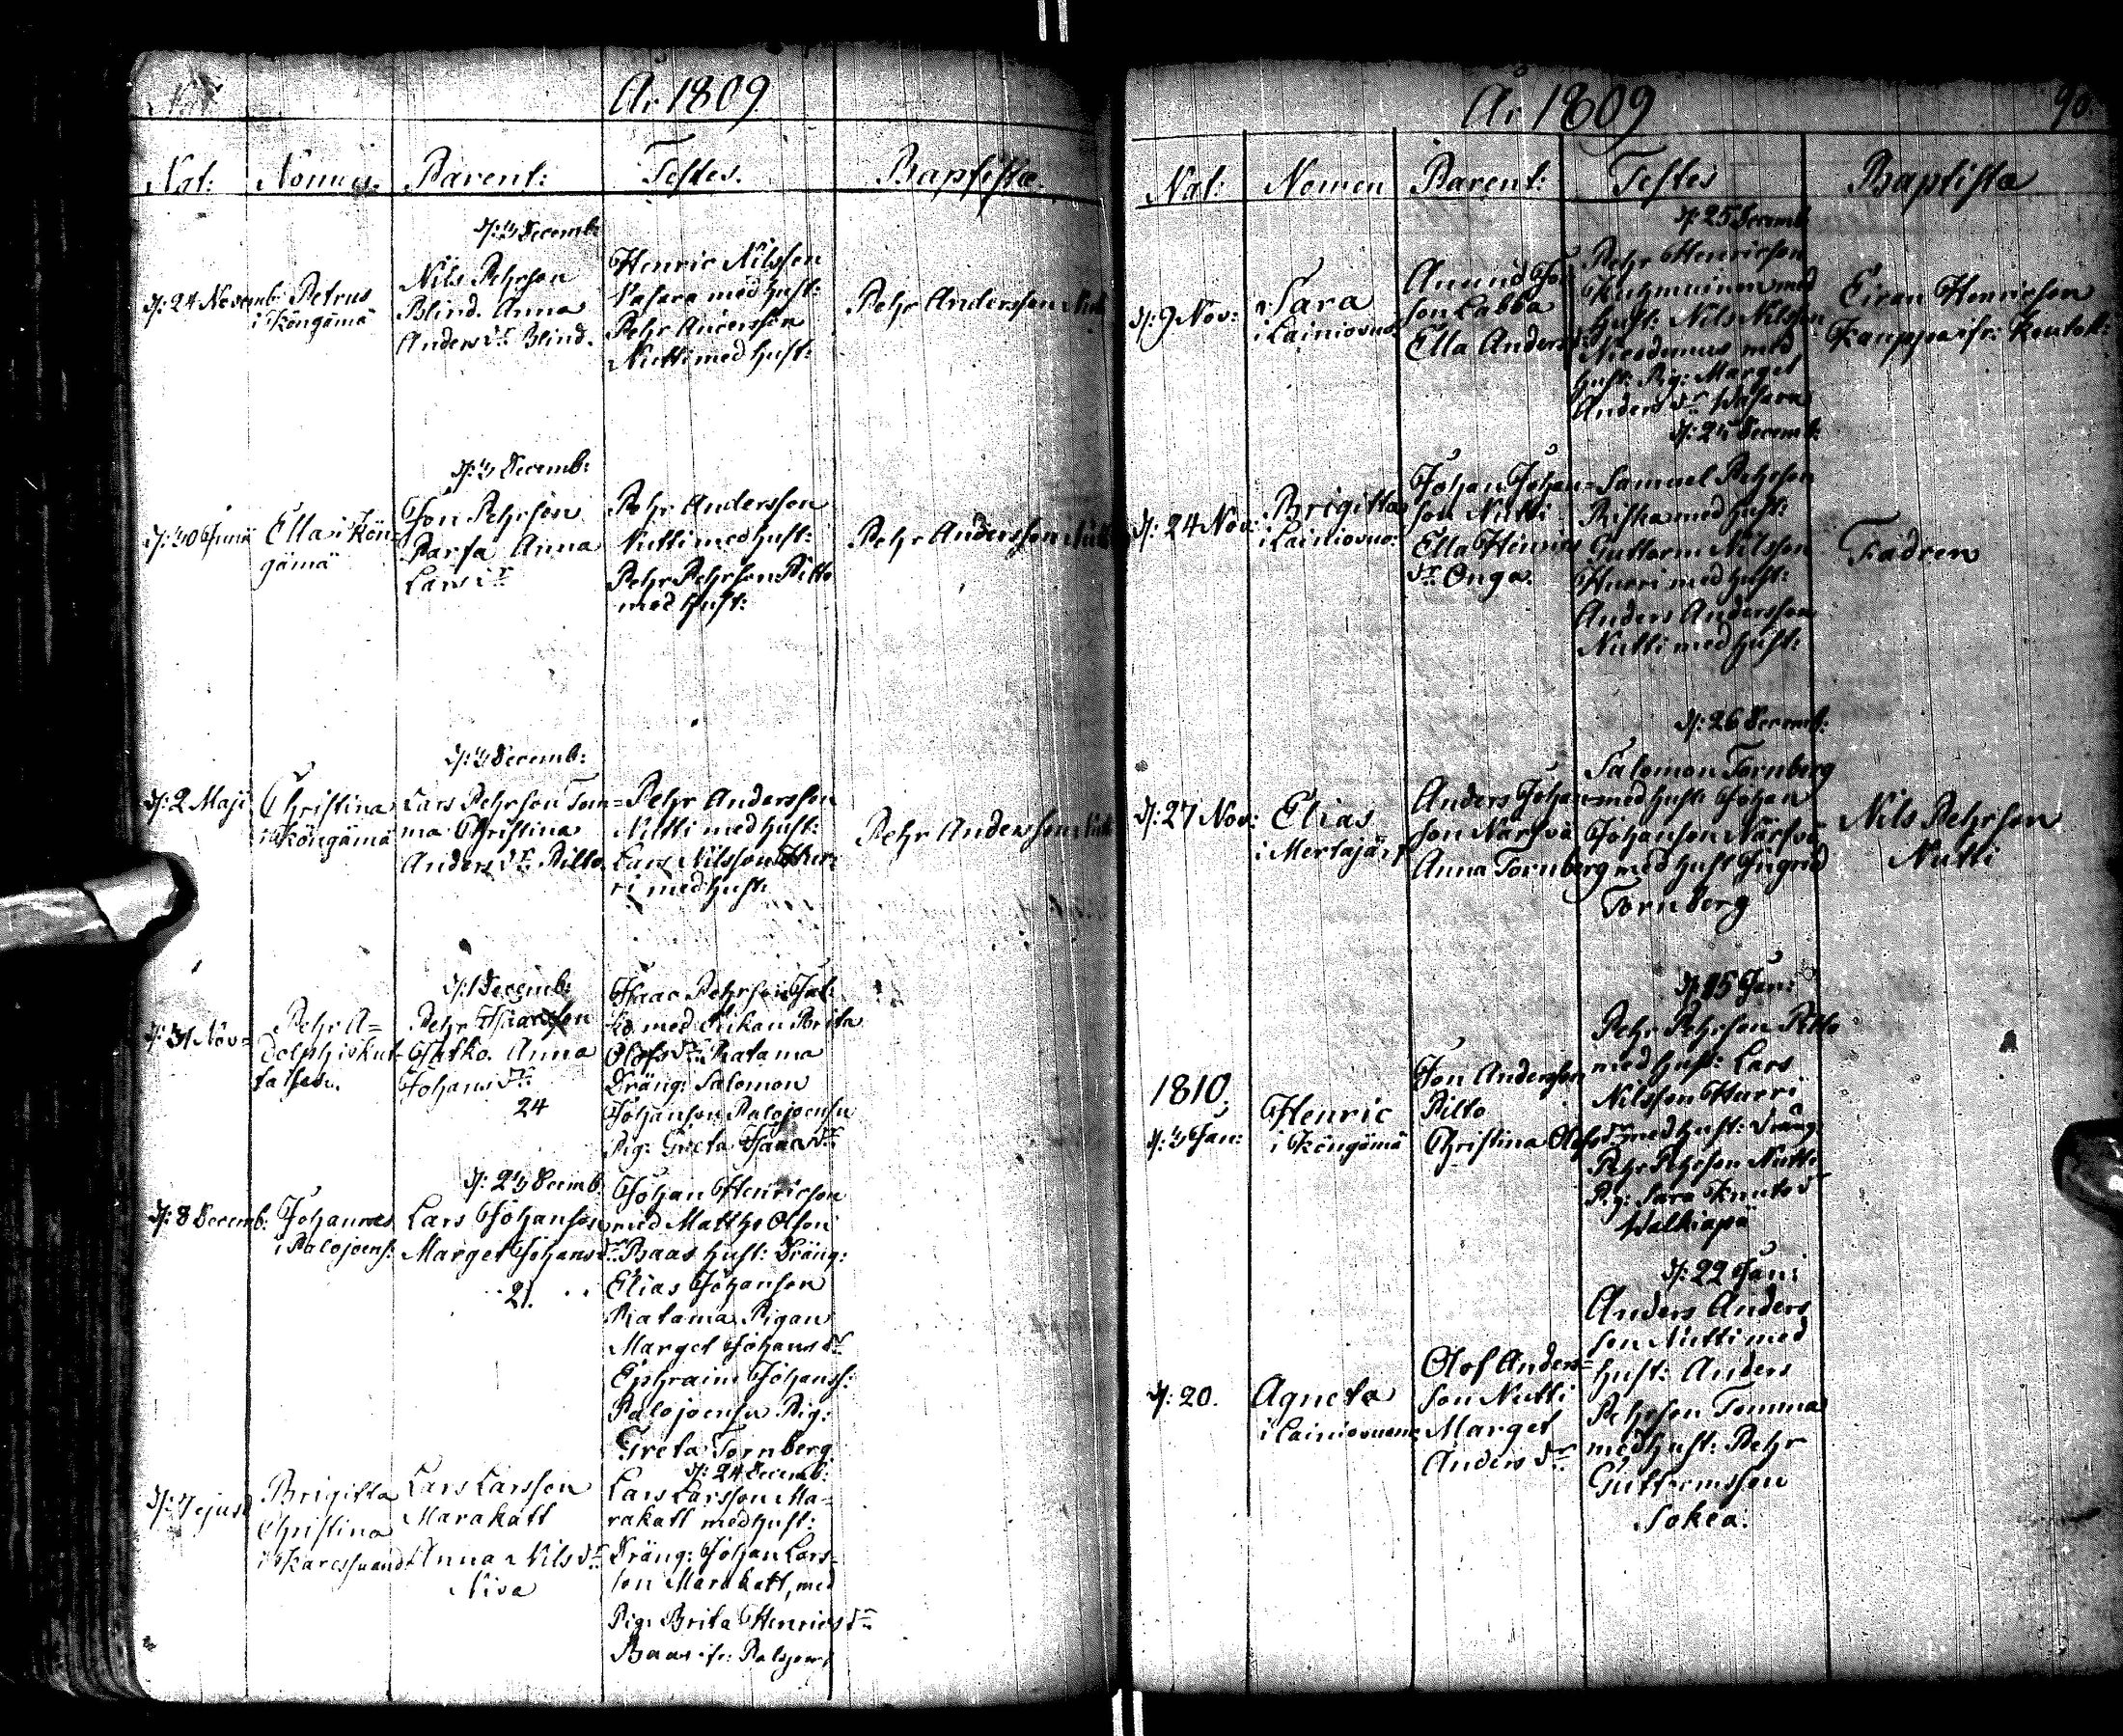 Nat:
A: 1809
Nat: Nomen. Parent: Testes. Baptistæ.
d: 3 Decemb:
d: 24 Novemb: Petrus
i Köngämä
Nils Pehrson
Blind. Anna
Anders dr Blind.
Henric Nilsson
Vasara med hust:
Pehr Andersson
Nutti med hust:
Pehr Andersson Nutti
d: 3 Decemb:
d: 30 Junii
Ella i Kön=
gämä
Jon Pehrson
Parfa Anna
Lars dr
Pehr Andersson
Nutti med hust:
Pehr Pehrson Pilto
med hust:
Pehr Andersson Nutti
d: 3 Decemb:
d: 2 Maji
Christina
i Köngämä
Lars Pehrson Tom=
ma Christina
Anders dr Pilto
Pehr Andersson
Nutti med hust:
Lars Nilsson Hur=
ri med hust:
Pehr Andersson Nutti
d: 1 Decemb:
d: 31 Nov=
Pehr A=
dolph i Kut=
taisen.
Pehr Isaacson
Jatko. Anna
Johans dr
24
Isaac Pehrson Jat=
ko med Pikan Brita
Olofs dr Ratama
Dräng: Salomon
Johanson Palojoensu
Pig: Greta Isaacs dr
d: 23 Decemb:
d: 8 Decemb:
Johannes
i Palojoens:
Lars Johanson
Marget Johans dr
21.
Johan Henricson
med Matths Olson
Baas hust: Dräng:
Elias Johanson
Ratama Pigan
Marget Johans dr
Ephraim Johanss:
Palojoensu Pig:
Greta Tornberg
d: 24 Decemb:
d: 7 ejusd
Brigitta
Christina
i Karessuand
Lars Larsson
Marakatt
Anna Nils dr
Niva
Lars Larsson Ma=
rakatt med hust:
Dräng: Johan Lars=
son Marakatt, med
Pig: Brita Henrics dr
Baas ifr: Palojoens
A: 1809
90.
Nat: Nomen Parent: Testes Baptista
d: 25 Decemb
d: 9 Nov:
Sara
i Lainiovuo:
Amund Jon
son Labba
Ella Anders dr
Pehr Henricson
Kuhmuinen med
hust: Nils Nilsson
Nicodemus med
hust: Pig: Marget
Anders dr Wasara
Eican Henricson
Kauppa ifr: Kautok:
d: 25 Decemb:
d: 24 Nov:
Brigitta
i Lainiovuo:
Johan Johan=
son Nutti
Ella Henrics
dr Onga.
Samuel Pehrson
Riska med hust:
Guttorm Nilsson
Hurri med hust:
Anders Andersson
Nutti med hust:
Fadren
d: 26 Decemb:
d: 27 Nov:
Elias
i Mertajärf
Anders Johan=
son Närfvä
Anna Tornberg
Salomon Tornberg
med hust: Johan
Johanson Närfvä
med hust Ingrid
Tornberg
Nils Pehrson
Nutti
d: 15 Jan:
1810.
d: 3 Jan:
Henric
i Köngämä
Jon Anderson
Pilto
Christina Olofs dr
Pehr Pehrson Pilto
med hust: Lars
Nilsson Hurri
med hust: Dräng:
Pehr Pehrson Nutti
Pig: Sara Knuts dr
Walkiapä
d: 22 Jan:
d: 20.
Agneta
i Lainiovuoma
Olof Anders=
son Nutti
Marget
Anders dr
Anders Anders
son Nutti med
hust: Anders
Pehrson Tomma
med hust: Pehr
Guttormsson
Sokea.